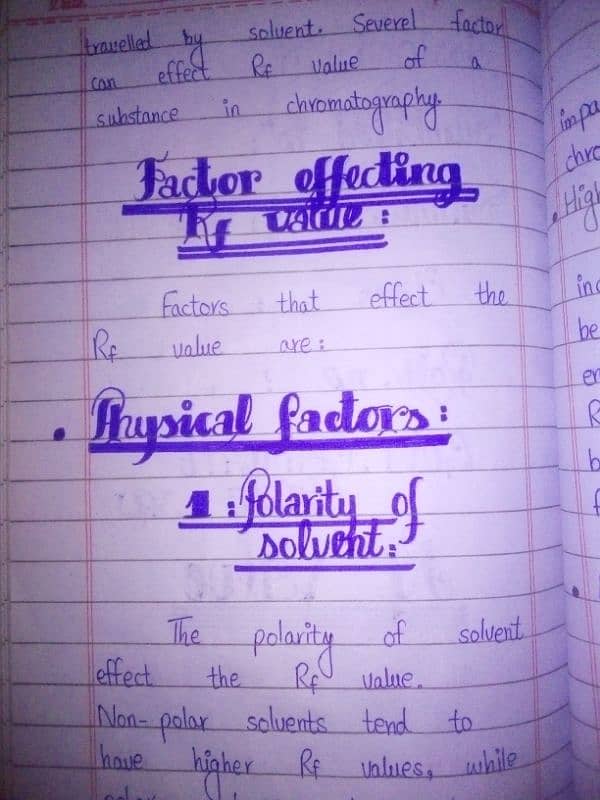 travelled by solvent. Severel factor
can effect Rf value of a
substance in chromatography.
Factor effecting
Rf value :
Factors that effect the
Rf value are :
• Physical factors :
1 : Polarity of
solvent :
The polarity of solvent
effect the Rf value.
Non-polar solvents tend to
have higher Rf values, while
chro
• High
be